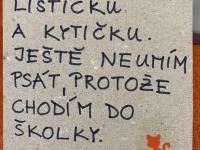 LÍSTIČKU.
A KYTIČKU.
JEŠTĚ NEUMÍM
PSÁT, PROTOŽE
CHODÍM DO
ŠKOLKY.